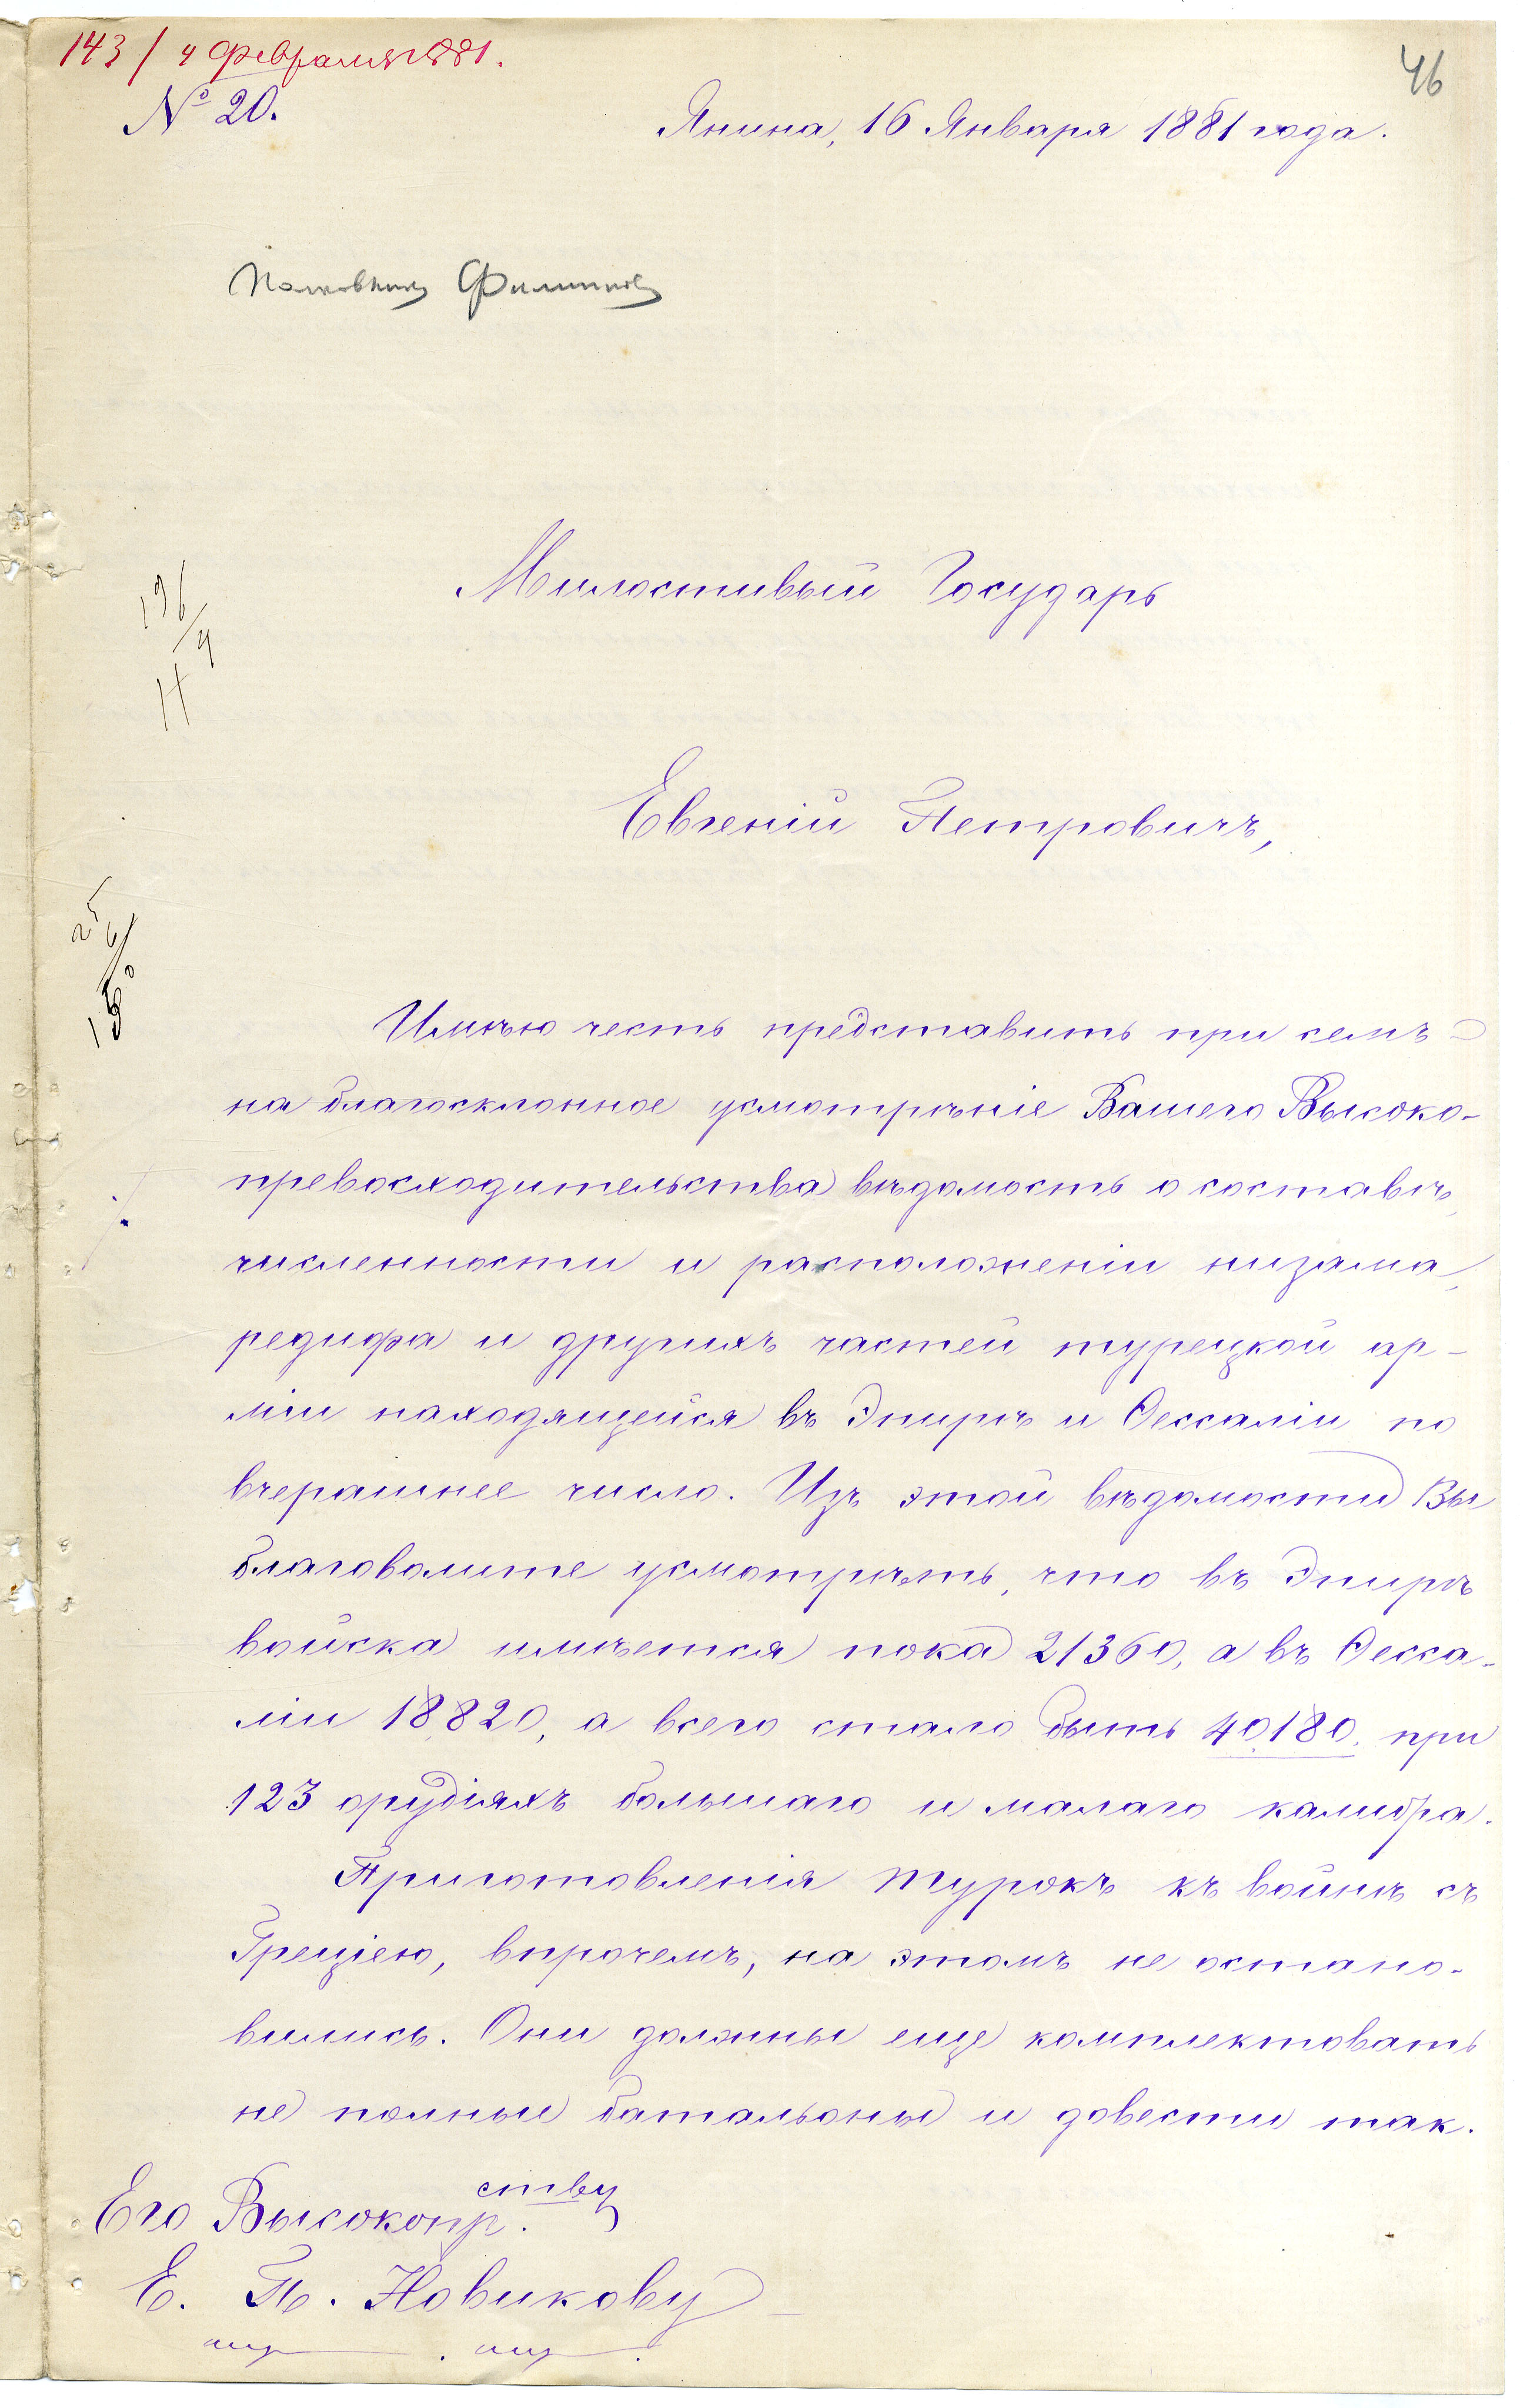 143 / 4 февраля 1881.
46
№ 20.
Янина, 16 Января 1881 года.
Полковнику Филиппову
Милостивый Государь
Евгеній Петровичъ,
Имѣю честь представить при семъ
на благосклонное усмотрѣніе Вашего Высоко-
превосходительства вѣдомость о составѣ,
численности и расположеніи низама,
редифа и другихъ частей турецкой ар-
міи находящейся въ Эпирѣ и Ѳессаліи по
вчерашнее число. Изъ этой вѣдомости Вы
благоволите усмотрѣть, что въ Эпирѣ
войска имѣется пока 21360, а въ Ѳесса-
ліи 18820, а всего стало быть 40180. при
123 орудіяхъ большаго и малаго калибра.
Приготовленія турокъ къ войнѣ съ
Греціею, впрочемъ, на этомъ не остано-
вились. Они должны еще комплектовать
не полные баталіоны и довести так.
Его Высокопр.ству
Е. П. Новикову